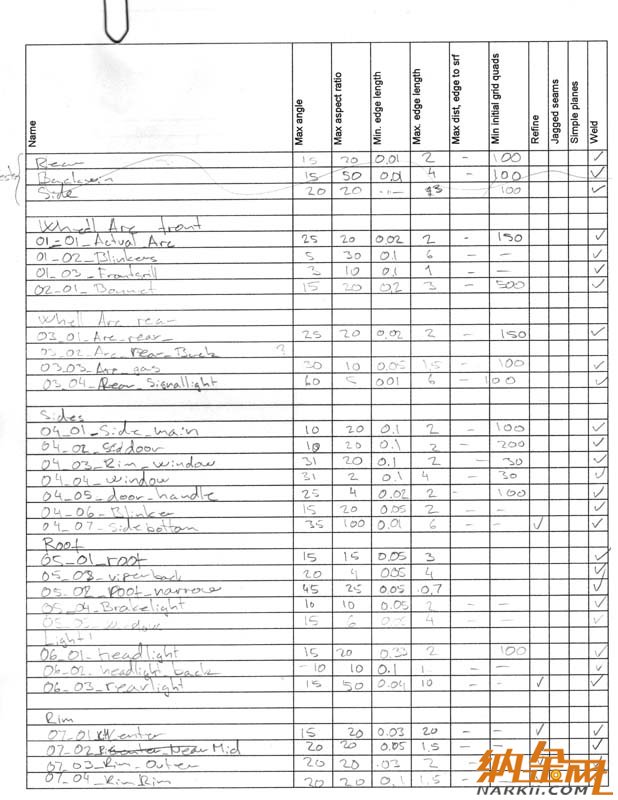 Name Max angle Max aspect ratio Min. edge length Max. edge length Max dist, edge to srf Min initial grid quads Refine Jagged seams Simple planes Weld
Rear 15 20 0.01 2 - 100 ✓
15 50 0.01 4 - 100 ✓
Side 20 20 - 100 ✓
Whell Arc front
01-01_Actual_Arc 25 20 0.02 2 - 150 ✓
01-02_Blinkers 5 30 0.1 6 - - ✓
01_03_Frontgrill 3 10 0.1 1 - - ✓
02-01_Bonnet 15 20 0.2 3 - 500 ✓
Whell Arc rear
03_01_Arc_rear 25 20 0.02 2 - 150 ✓
03_02_Arc_rear_Back ?
03_03_Arc_gas 30 10 0.05 1,5 - 100 ✓
03_04_Rear_Signallight 60 5 001 6 - 100 ✓
Sides
04_01_Side_main 10 20 0.1 2 - 100 ✓
04_02_Sddoor 10 20 0.1 2 - 200 ✓
04_03_Rim_window 31 20 0.1 2 - 30 ✓
04_04_window 31 2 0.1 4 - 30 ✓
04_05_door_handle 25 4 0.02 2 - 100 ✓
04_06_Blinker 15 20 0.05 2 - - ✓
04_07_Sidebottom 35 100 0.01 6 - - ✓ ✓
Roof
05_01_roof 15 15 0.05 3 ✓
05_03_viperback 20 4 0.05 4 ✓
05_02_Roof_narrow 45 25 0.05 0,7 ✓
05_04_Brakelight 10 10 0.05 2 - - ✓
15 6 4 - - ✓
Light
06_01_headlight 15 20 2 100 ✓
06_02_headlight_back 10 10 0.1 1 - - ✓
06_03_rearlight 15 50 0.04 10 - - ✓ ✓
Rim
07_01 Center 15 20 0.03 20 - - ✓ ✓
07_02 Near Mid 20 20 0.05 1,5 - - ✓
07_03_Rim_Outer 20 20 .03 2 - - ✓ ✓
07_04_RimRim 20 20 0.1 1,5 - -
纳金网
NARKII.COM